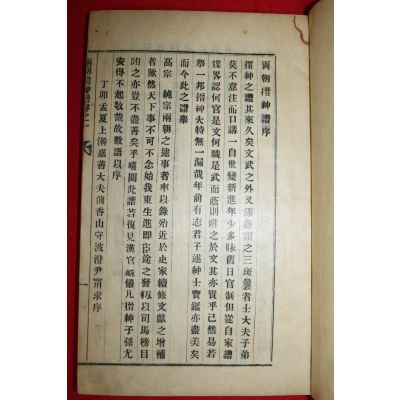 兩朝搢紳譜序
搢紳之譜其來久矣文武之外又添蔭謂之三班曩者士大夫子弟
莫不意注而口講一自世變新進年少多昧舊日官制但從自家譜
牒畧認何官是文何職是武而蔭則附之於文其亦責乎已然易若
擧一邦搢紳大特無一漏哉年前有志君子述紳士寶鑑亦盡美矣
而今此之譜專
高宗 純宗兩朝之逮事者率以錄殆近於史家續修文獻之增補
者歟然天下事不可不念始我東生進即臣途之發軔以司馬榜目
附之亦豈不盡善矣乎嘻閱此譜若復見漢官威儀凡搢紳子孫尤
安得不起敬哉故數語以序
丁卯孟夏上澣嘉善大夫前香山守波澄尹甯求序